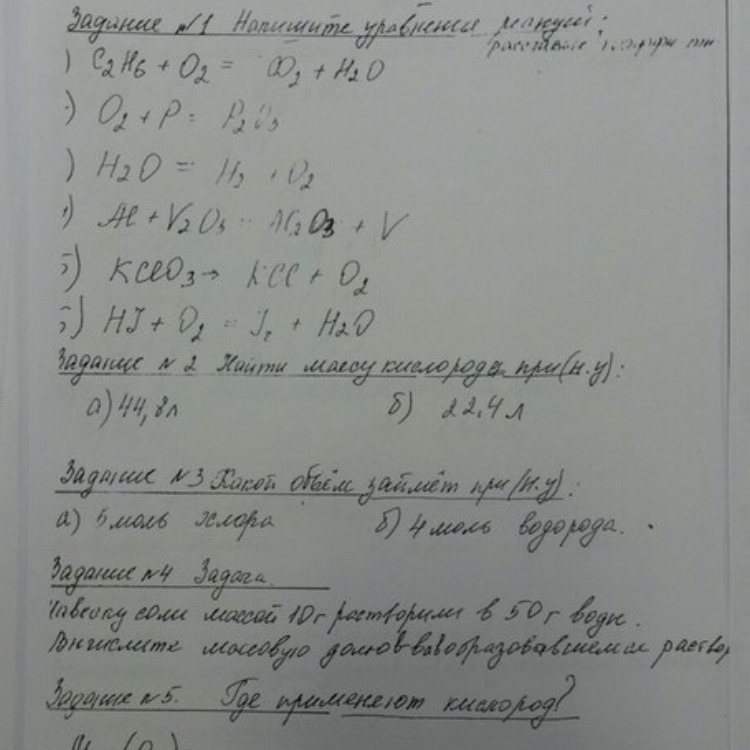 Задание №1 Напишите уравнения реакций;
расставьте
) C2H6 + O2 = CO2 + H2O
) O2 + P = P2O5
) H2O = H2 + O2
) Al + V2O5 = Al2O3 + V
5) KClO3 → KCl + O2
) HJ + O2 = J2 + H2O
Задание №2 Найти массу кислорода при (н.у):
а) 44,8л б) 22,4 л
Задание №3 Какой объём займёт при (н.у):
а) 5 моль хлора б) 4 моль водорода.
Задание №4 Задача.
Навеску соли массой 10 г растворили в 50 г воды.
Вычислите массовую долю в-ва в образовавшемся раствор
Задание №5. Где применяют кислород?